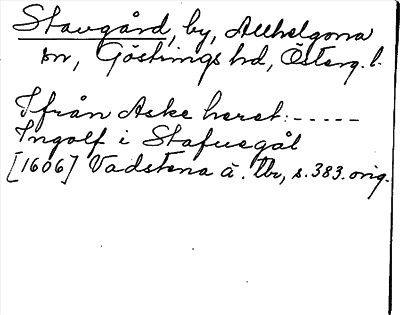 Stavgård, by, Allhelgona
sn, Göstrings hd, Österg. l.
Ifrån Aske herat: -----
Ingolf i Stafuegål
[1606] Vadstena ä. tb, s. 383. orig.